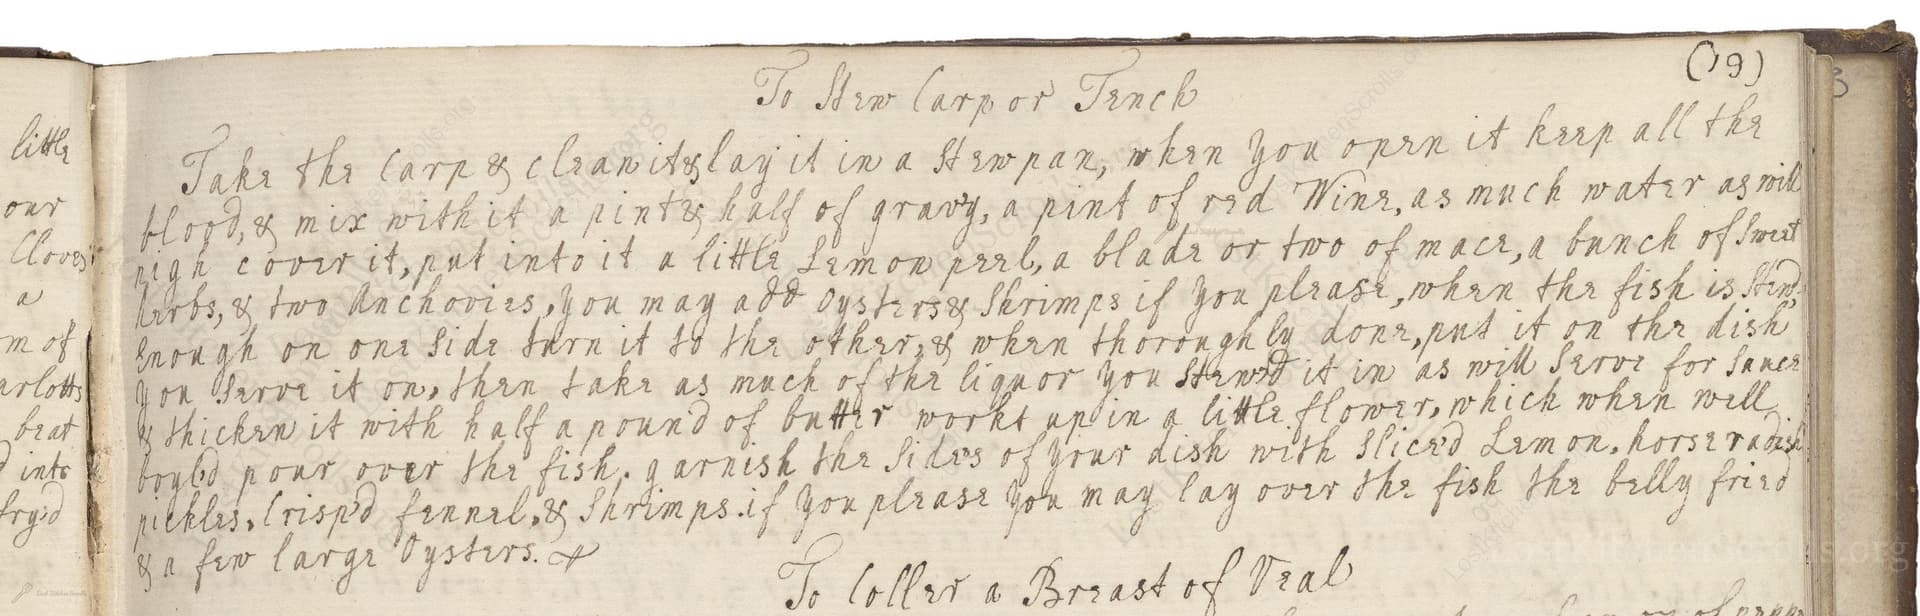 (19)
To Stew Carp or Tench
Take the Carp & clean it & lay it in a Stewpan, when you open it keep all the
blood, & mix with it a pint & half of gravy, a pint of red Wine, as much water as will
nigh cover it, put into it a little Lemon peel, a blade or two of mace, a bunch of Sweet
herbs, & two Anchovies, you may add Oysters & Shrimps if you please, when the fish is Stew'd
Enough on one Side turn it to the other, & when thoroughly done, put it on the dish
you Serve it on, then take as much of the liquor you Stewed it in as will Serve for Sauce
& thicken it with half a pound of butter workt up in a little flower, which when well
boyl'd pour over the fish. garnish the Sides of your dish with Sliced Lemon, horse radish
pickles, Crisp'd fennel, & Shrimps. if you please you may lay over the fish the belly fried
& a few large Oysters.
To Coller a Breast of Veal
little
our
Cloves
a
m of
arlotts
beat
d into
fry'd